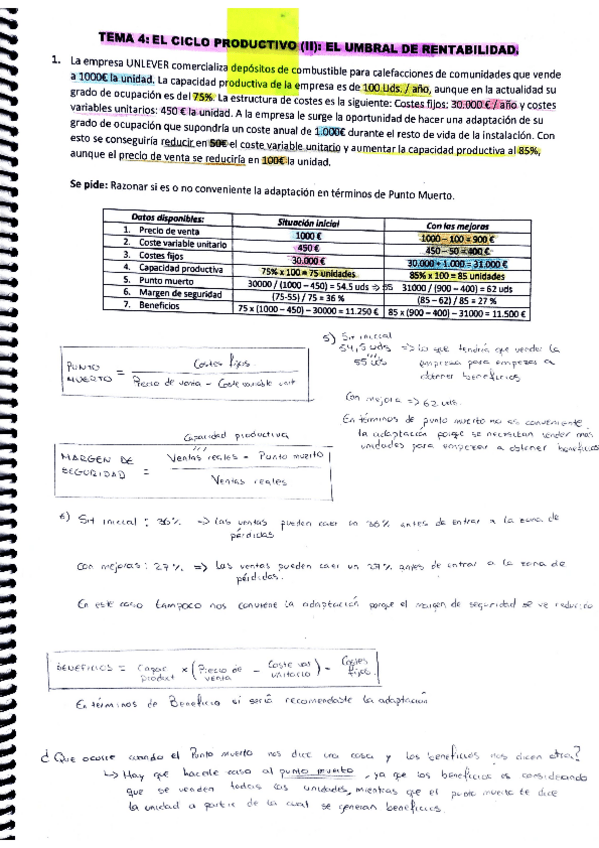 TEMA 4: EL CICLO PRODUCTIVO (II): EL UMBRAL DE RENTABILIDAD.
1. La empresa UNLEVER comercializa depósitos de combustible para calefacciones de comunidades que vende
a 1000€ la unidad. La capacidad productiva de la empresa es de 100 Uds. / año, aunque en la actualidad su
grado de ocupación es del 75%. La estructura de costes es la siguiente: Costes fijos: 30.000 € / año y costes
variables unitarios: 450 € la unidad. A la empresa le surge la oportunidad de hacer una adaptación de su
grado de ocupación que supondría un coste anual de 1.000€ durante el resto de vida de la instalación. Con
esto se conseguiría reducir en 50€ el coste variable unitario y aumentar la capacidad productiva al 85%,
aunque el precio de venta se reduciría en 100€ la unidad.
Se pide: Razonar si es o no conveniente la adaptación en términos de Punto Muerto.
Datos disponibles: Situación inicial Con las mejoras
1. Precio de venta 1000 € 1000 – 100 = 900 €
2. Coste variable unitario 450 € 450 – 50 = 400 €
3. Costes fijos 30.000 € 30.000 + 1.000 = 31.000 €
4. Capacidad productiva 75% x 100 = 75 unidades 85% x 100 = 85 unidades
5. Punto muerto 30000 / (1000 – 450) = 54.5 uds => 55 31000 / (900 – 400) = 62 uds
6. Margen de seguridad (75-55) / 75 = 36 % (85 – 62) / 85 = 27 %
7. Beneficios 75 x (1000 – 450) – 30000 = 11.250 € 85 x (900 – 400) – 31000 = 11.500 €
PUNTO MUERTO = Costes fijos / Precio de venta - Coste variable unit
5) Sit inicial
54,5 uds => Lo que tendría que vender la
55 uds empresa para empezar a
obtener beneficios
Con mejora => 62 uds.
En términos de punto muerto no es conveniente
la adaptación porque se necesitan vender más
unidades para empezar a obtener beneficios
Capacidad productiva
MARGEN DE SEGURIDAD = Ventas reales - Punto muerto / Ventas reales
6) Sit inicial: 36% => Las ventas pueden caer un 36% antes de entrar a la zona de
pérdidas
Con mejoras: 27% => Las ventas pueden caer un 27% antes de entrar a la zona de
pérdidas.
En este caso tampoco nos conviene la adaptación porque el margen de seguridad se ve reducido
BENEFICIOS = Capac product x (Precio de venta - Coste var unitario) - Costes fijos.
En términos de Beneficio si sería recomendable la adaptación
¿Que ocurre cuando el Punto muerto nos dice una cosa y los beneficios nos dicen otra?
↳ Hay que hacerle caso al punto muerto, ya que los beneficios es considerando
que se venden todas las unidades, mientras que el punto muerto te dice
la unidad a partir de la cual se generan beneficios.